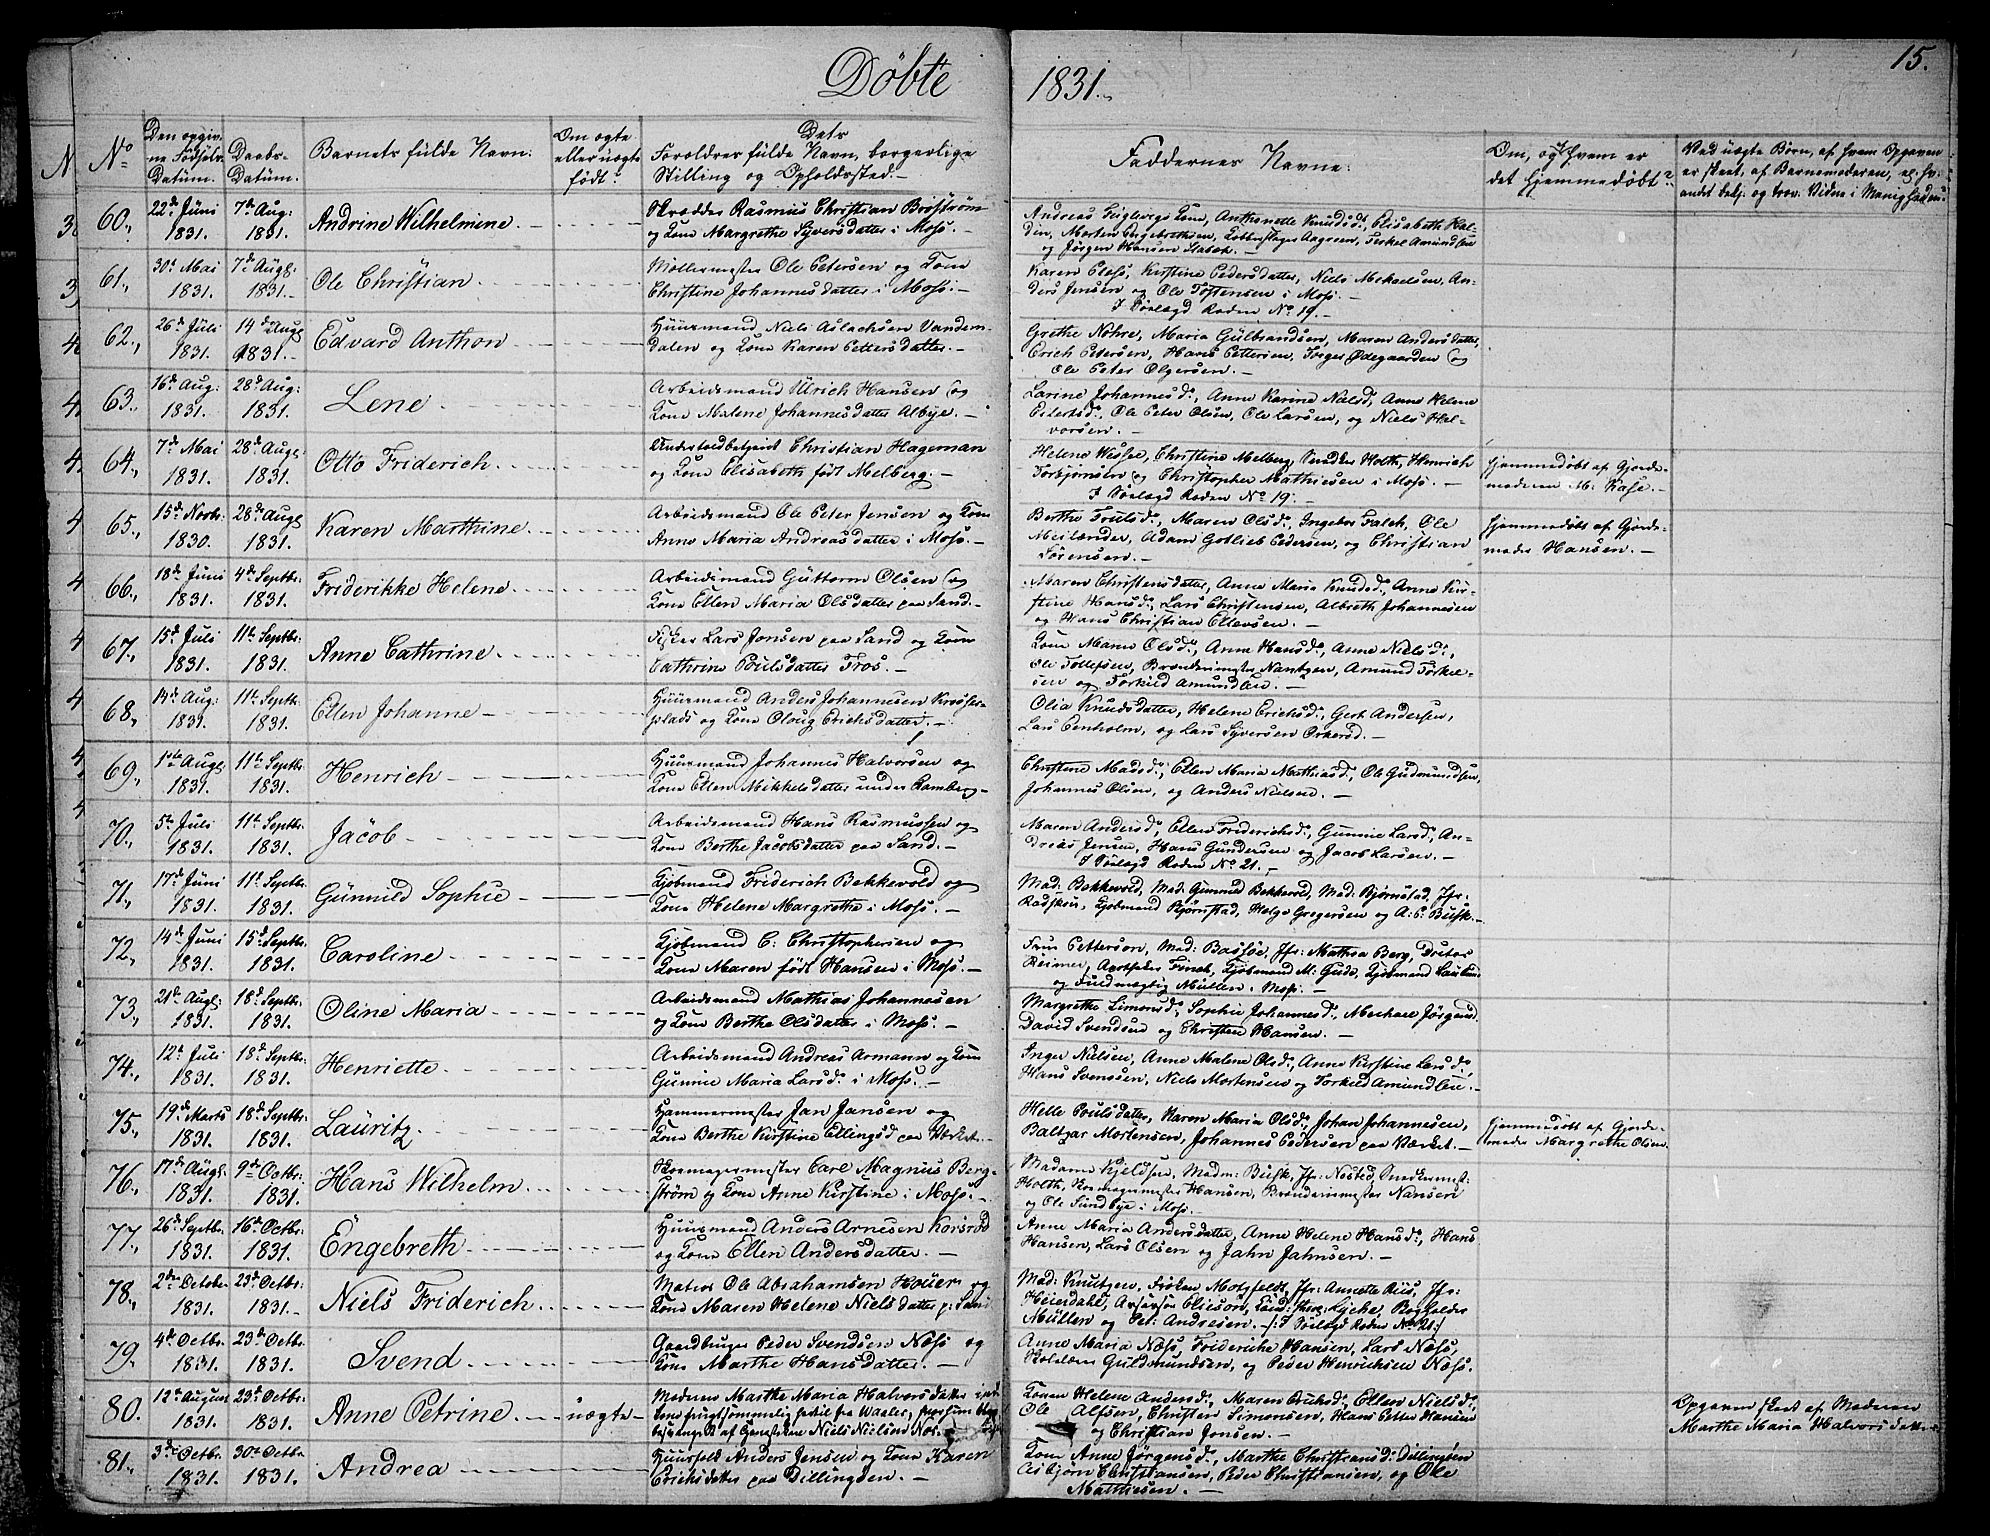 15.
Døbte 1831.
No
Den opgivne Fødsels-Datum.
Daabs-Datum.
Barnets fulde Navn.
Om ægte eller uægte født.
Dets Forældres fulde Navn, borgerlige Stilling og Opholdssted.
Faddernes Navne.
Om, og af hvem er det hjemmedøbt?
Ved uægte Børn, af hvem Opgaven er skeet, af Barnemoderen, el.
60., 22de Juni 1831. 7de Aug: 1831. Andrine Wilhelmine
Skrædder Rasmus Christian Broström
og Kone Margrethe Syversdatter i Moss.
61., 30te Mai 1831. 7de Augs: 1831. Ole Christian
Møllermester Ole Petersen og Kone
Christine Johannesdatter i Moss.
Karen Closs, Kirstine Pedersdatter, Niels Mickaelsen, An-
ders Jensen og Ole Tostensen i Moss.
I Søelægd Roden No 19.
62., 26de Juli 1831. 14de Augs 1831. Edvard Anthon
Huusmand Niels Aslachsen Vandem-
dalen og Kone Karen Pettersdatter.
Grethe Nøhre, Maria Gulbrandsen, Maren Andersdatter,
Erich Petersen, Hans Pettersen, Torger Ødegaarden og
Ole Peter Olgersen.
63., 16de Aug: 1831. 28de Aug: 1831. Lene
Arbeidsmand Ulrich Hansen og
Kone Malene Johannesdatter Albye.
Larine Johannesd., Anne Karine Nielsd., Anne Helene
Ole Peter Olsen, Ole Larsen, og Niels Hal-
vorsen.
64., 7de Mai 1831. 28de Augs 1831. Otto Friderich
Christian Hageman
og Kone Elisabeth født Melberg.
Helene Wesse, Christine Melberg, Holth, Henrich
Torbjørnsen og Christopher Mathiesen i Moss.
I Søelægd Roden No 19.
Hjemmedøbt af Gjorde-
moderen M: Kase.
65., 15de Novb. 1830. 28de Augs 1831. Karen Marthine
Arbeidsmand Ole Peter Jensen og Kone
Anne Maria Andreasdatter i Moss.
Berthe Trulsd., Maren Olsd., Ingebor Falch, Ole
Meilænder, Adam Gotlieb Pedersen, og Christian
Sørensen.
Hjemmedøbt af Gjorde-
moder Hansen.
66., 18de Juni 1831. 4de Septbr: 1831. Friderikke Helene
Arbeidsmand Guttorm Olsen og
Kone Ellen Maria Olsdatter paa Sand.
Maren Christensdatter, Anne Maria Knudsd., Anne Kir-
stine Hansd., Lars Christensen, Albreth Johannesen
og Hans Christian Ellevsen.
67., 15de Juli 1831. 11te Septbr: 1831. Anne Cathrine
Fisker Lars Jonsen paa Sand og Kone
Cathrine Poulsdatter Fros.
Kone Maren Olsd., Anne Hansd., Anne Nielsd.,
Ole Tollefsen, Brændemester Nantzen, Amund Torkil-
sen og Torkild Amundsen.
68., 14de Aug: 1831. 11te Septb: 1831. Ellen Johanne
Huusmand Anders Johannesen Krosser-
plads og Kone Oloug Erichsdatter.
Olia Knudsdatter, Helene Erichsd., Gert Andersen,
Lars Eenholm, og Lars Syversen Orkerød.
69., 1ste Augs: 1831. 11te Septb: 1831. Henrich
Huusmand Johannes Halvorsen og
Kone Ellen Mikkelsdatter under Ramberg.
Christine Madsd., Ellen Maria Mathiasd., Ole Gudmundsen,
Johannes Olsen, og Anders Nielsen.
70., 5te Juli 1831. 11te Septb: 1831. Jacob
Arbeidsmand Hans Rasmussen og
Kone Berthe Jacobsdatter paa Sand.
Maren Andersd., Ellen Friderichsd., Gunnie Larsd., An-
dreas Jensen, Hans Gundersen og Jacob Larsen.
I Søelægd Roden No 21.
71., 17de Juni 1831. 11te Septb: 1831. Gunnild Sophie
Kjøbmand Friderich Bekkevold og
Kone Helene Margrethe i Moss.
Mad: Bekkevold, Mad: Gunnild Bekkevold, Mad: Bjørnstad, Jfr:
Kjøbmand Bjørnstad, Helge Gregersen og A: P: Busk.
72., 14de Juni 1831. 15de Septb: 1831. Caroline
Kjøbmand C: Christophersen og
Kone Maren født Hansen i Moss.
Frue Petterson, Mad: Bassøe, Jfr: Mathea Berg, Doctor
Reimer, Apotheker Finch, Kjøbmand M: Gude, Kjøbmand
og Fuldmægtig Müller i Moss.
73., 21de Augs: 1831. 18de Septb: 1831. Oline Maria
Arbeidsmand Mathias Johannesen
og Kone Berthe Olsdatter i Moss.
Margrethe Simonsd., Sophie Johannesd., Mickael Jørgens.
David Svendsen og Christen Hansen.
74., 12te Juli 1831. 18de Septb: 1831. Henriette
Arbeidsmand Andreas Armann og Kone
Gunnie Maria Larsd. i Moss.
Inger Nielsen, Anne Malene Olsd., Anne Kirstine Larsd.,
Hans Svenssen, Niels Mortensen og Torkild Amundsen.
75., 19de Marts 1831. 18de Septb: 1831. Lauritz
Hammermester Jan Jansen og
Kone Berthe Kirstine Ellingsd paa Værket.
Helle Poulsdatter, Karen Maria Olsd., Johan Johannesen,
Baltzar Mortensen, Johannes Pedersen paa Værket.
Hjemmedøbt af Gjorde-
moder Margrethe Olsen.
76., 17de Augs: 1831. 9de Octbr: 1831. Hans Wilhelm
Skomagermester Carl Magnus Berg-
strøm og Kone Anne Kirstine i Moss.
Madame Kjeldsen, Madm: Busk, Jfr: Nested, Snedkermest:
Holth, Skomagermester Hansen, Brændemester Nansen
og Ole Sundbye i Moss.
77., 26de Septb: 1831. 16de Octbr: 1831. Engebreth
Huusmand Anders Arnesen Korsrød
og Kone Ellen Andersdatter.
Anne Maria Andersdatter, Anne Helene Hansd., Hans
Hansen, Lars Olsen og Jahn Jahnsen.
78., 2den October 1831. 23de Octbr: 1831. Niels Friderich
Matros Ole Abrahamsen Houer og
Kone Maren Helene Nielsdatter p: Sand
Mad: Knutzen, Frøken Motzfeldt, Jfr: Annette Riis, Jfr:
Heierdahl, Assessor Eliesøn, Lycke, Bogholder
Müller og Pet: Andresen. /: I Søelægd Roden No 21 :/
79., 4de Octbr. 1831. 23de Octbr: 1831. Svend
Gaardbruger Peder Svendsen Næss og
Kone Marthe Hansdatter.
Anne Maria Næss, Friderikke Hansen, Lars Næss,
Guldmundsen, og Peder Henrichsen Næss.
80. 12te August 1831. 23de Octbr: 1831. Anne Petrine uægte
Moderen Marthe Maria Halvorsdatter
fra Waaler,
Niels Nielsen
Konen Helene Andersd., Maren Erichsd., Ellen Nielsd.,
Ole Alfsen, Christen Simonsen, Hans Petter Hansen
og Christian Jonsen.
Opgaven skeet af Moderen
Marthe Maria Halvorsdatter.
81., 3de Octbr. 1831. 30te Octbr 1831. Andrea
Huusfolk Anders Jensen og Kone Karen
Erichsdatter paa Dillingøen.
Kone Anne Jørgensd., Marthe Christiansd: Dillingøen
Asbjørn Christiansen, Peder Christiansen, og Ole
Mathiesen.